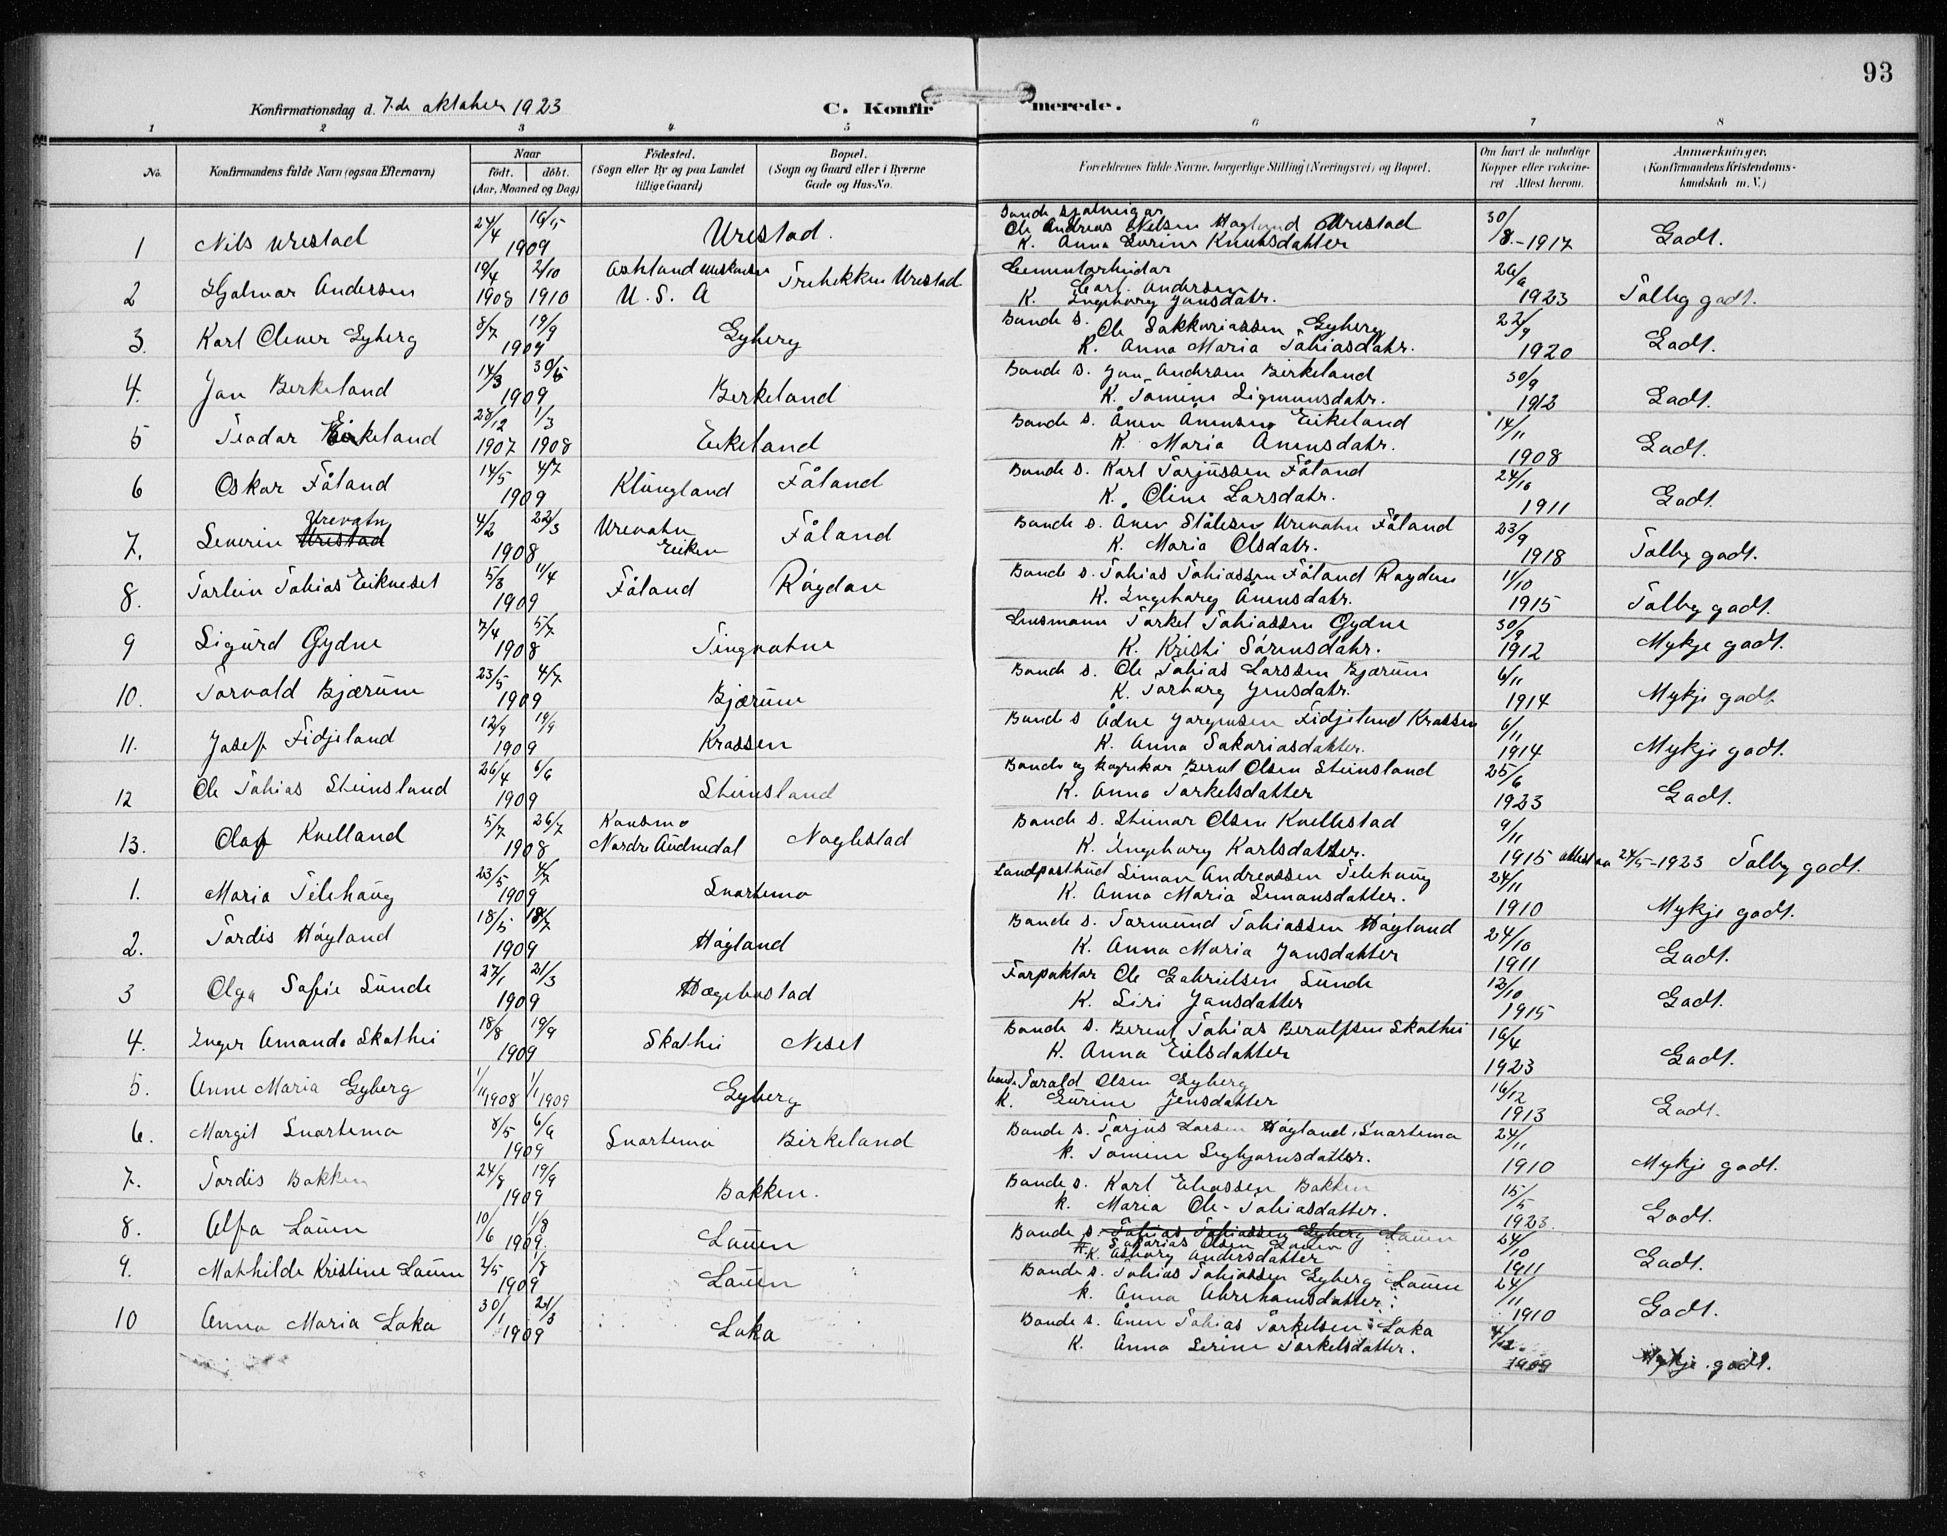 93
Konfirmationsdag d. 7de oktober 1923
C. Konfirmerede.
1 2 3 4 5 6 7 8
No.
Konfirmandens fulde Navn (ogsaa Efternavn)
Naar
født. døbt.
(Aar, Maaned og Dag)
Fødested.
(Sogn eller By og paa Landet
tillige Gaard)
Bopæl.
(Sogn og Gaard eller i Byerne
Gade og Hus-No.
Forældrenes fulde Navne, borgerlige Stilling (Næringsvei) og Bopæl.
Om havt de naturlige
Kopper eller vakcine-
ret Attest herom.
Anmærkninger.
(Konfirmandens Kristendoms-
kundskab m. V.)
1 Nils Urestad 24/4 16/5 1909 Urestad.
Bonde
Ole Andreas Nilsen Hogland Urestad
K. Anna Severine Knutsdatter
30/8-1917 Godt.
2 Hjalmar Andersen 19/4 1908 2/10 1910 Ashland U.S.A Trebekken Urestad
Cementarbeidar
Carl Andersen
K. Ingeborg Jonsdatr.
26/9 1923 Tolleg godt.
3. Karl Elmer Gyberg 8/7 19/9 1909 Gyberg
Bonde s. Ole Sakkariassen Gyberg
K. Anna Maria Tobiasdatr.
22/9 1920 Godt.
4. Jon Birkeland 14/3 30/5 1909 Birkeland
Bonde s. Jon Andersen Birkeland
K. Tomine Sigmunsdatr.
30/9 1913 Godt.
5 Teodor Eikeland 28/12 1907 1/3 1908 Eikeland
Bonde s. Ånen Ånensen Eikeland
K. Maria Ånensdatr.
14/11 1908 Godt.
6 Oskar Fåland 14/5 4/7 1909 Klungland Fåland
Bonde s. Karl Torjussen Fåland
K. Oline Larsdatr.
24/10 1911 Godt.
7. Severin Urestad Urevatn 4/2 22/3 1908 Urevatn Eiken Fåland
Bonde s. Ånen Ståleson Urevatn Fåland
K. Maria Olsdatr.
23/9 1918 Tolleg godt.
8. Torleiv Tobias Eikneset 5/3 11/4 1909 Fåland Røydan
Bonde s. Tobias Tobiassen Fåland Røydan
K. Ingeborg Ånensdatr.
11/10 1915 Tolleg godt.
9 Sigurd Gydne 7/4 5/7 1908 Tingvatne
Lensmann Torkel Tobiassen Gydne
K. Kristi Sørensdatr.
30/9 1912 Mykje godt.
10. Torvald Bjærum 23/5 4/7 1909 Bjærum
Bonde s. Ole Tobias Larssen Bjærum
K. Torborg Jensdatr.
6/11 1914 Mykje godt
11. Josef Fidjeland 12/9 19/9 1909 Krossen
Bonde s Ådne Jørgensen Fidjeland Krossen
K. Anna Sakariasdatter.
6/11 1914 Mykje godt.
12 Ole Tobias Steinsland 26/4 6/6 1909 Steinsland
Bonde og Bernt Olsen Steinsland
K. Anna Torkelsdatter
25/6 1923 Godt.
13. Olaf Kvelland 5/7 26/7 1908 Konsmo Nordre Audnedal
Bonde s. Steinar Olsen
K. Ingeborg Karlsdatter.
9/11 1915 24/5-1923 Tolleg godt.
1. Maria Telehaug 23/5 4/7 1909 Snartemo
Landpostbud Simon Andreassen Telehaug
K. Anna Maria Simonsdatter.
24/11 1910 Mykje godt.
2. Tordis Høyland 18/5 18/7 1909 Høyland
Bonde s. Tormund Tobiassen Høyland
K. Anna Maria Jonsdatter
24/10 1911 Godt.
3 Olga Sofie Sunde 27/1 21/3 1909 Hægebostad
Forpaktar Ole Gabrielsen Sunde
K. Siri Jonsdatter
12/10 1915 Godt.
4. Inger Amanda Skothei 18/8 19/9 1909 Skothei Neset
Bonde s. Berent Tobias Berntssen Skothei
K. Anna Eielsdatter
16/4 1923 Godt.
5. Anne Maria Gyberg 1/11 1908 1/1 1909 Gyberg
bonde Torald Olsen Gyberg
K. Gurine Jensdatter
16/12 1913 Godt.
6. Margit Snartemo 8/5 6/9 1909 Snartemo Birkeland
Bonde s. Torjus Larsen Høyland, Snartemo
K. Tomine Segbjørnsdatter.
24/11 1910 Mykje godt.
7. Tordis Bakken 24/8 19/9 1909 Bakken.
Bonde s. Karl Eliassen Bakken
K. Maria Ole-Tobiasdatter.
15/5 1923. Godt.
8. Alfa Lauen 10/6 1/8 1909. Lauen
Bonde s. Tobias Tobiassen Gyberg Lauen
Sakarias Olsen Lauen
K. Asborg Andersdatter
24/10 1911 Godt.
9. Mathilde Kristine Lauen 2/5 1/8 1909 Lauen
Bonde s. Tobias Tobiassen Gyberg Lauen
K. Anna Abrahamsdatter
24/11 1910 Godt.
10 Anna Maria Loka 30/1 21/3 1909 Loka
Bonde s. Ånen Tobias Torkelsen Loka
K. Anna Serine Torkelsdatter.
4/12 1909 Mykje godt.